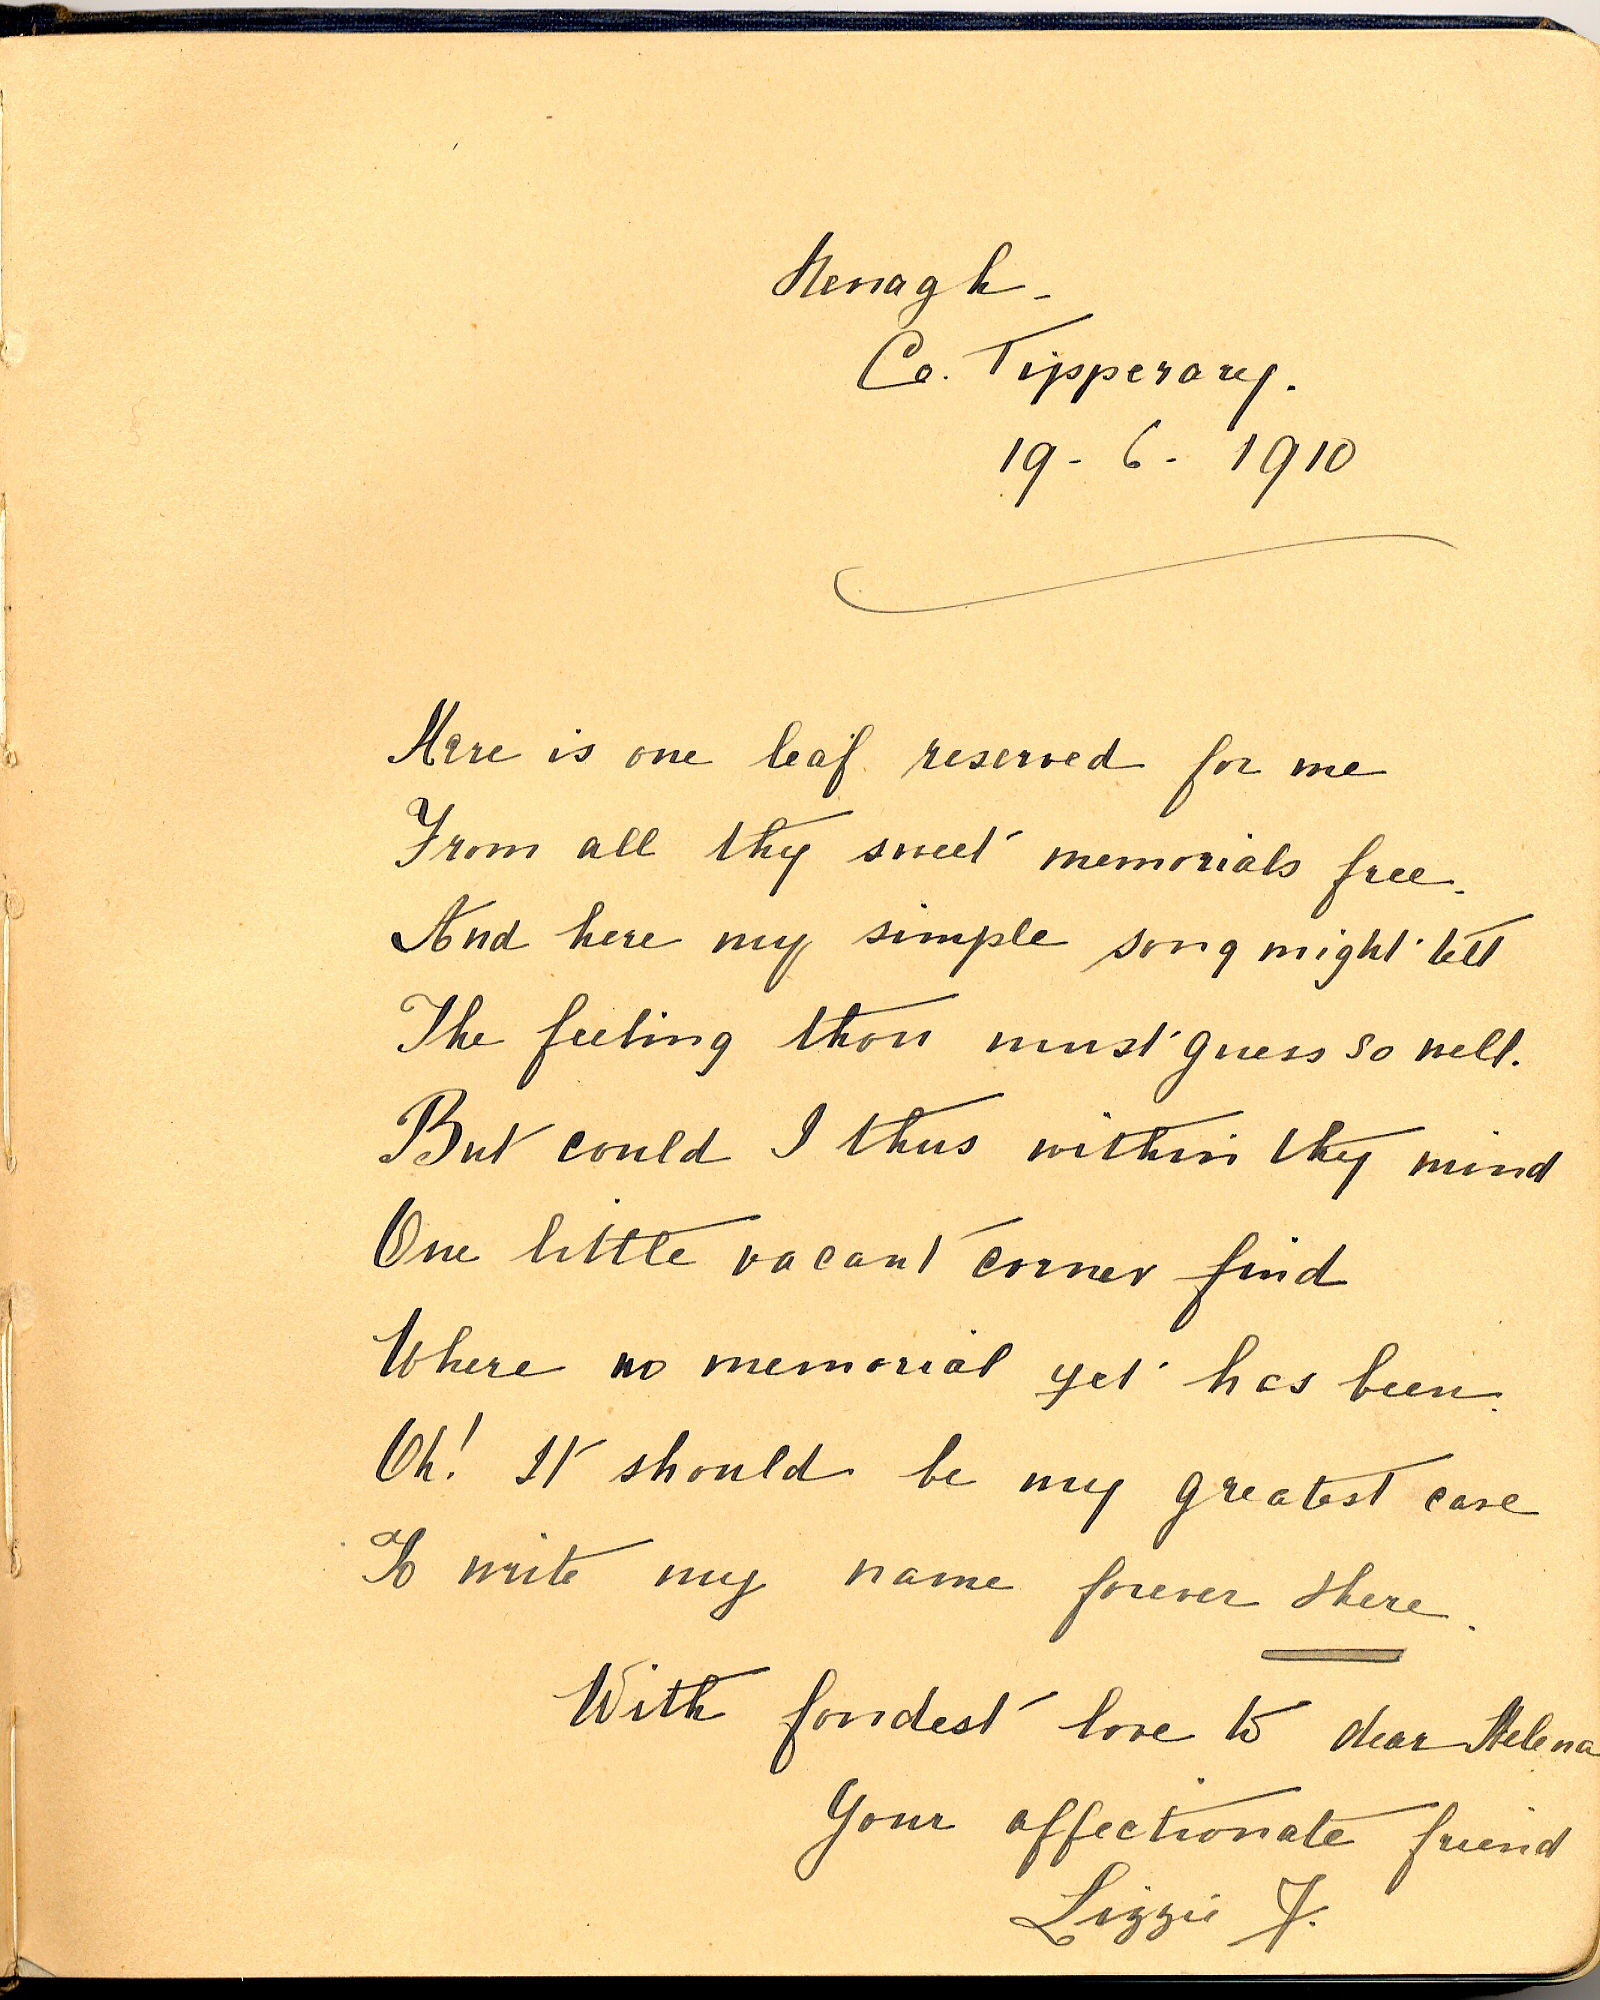 Nenagh -
Co. Tipperary.
19 - 6 - 1910
Here is one leaf reserved for me
From all thy sweet memorials free.
And here my simple song might tell
The feeling thou must guess so well.
But could I thus within thy mind
One little vacant corner find
Where no memorial yet has been.
Oh! It should be my greatest care
To write my name forever there.
With fondest love to dear Helena
Your affectionate friend
Lizzie F.